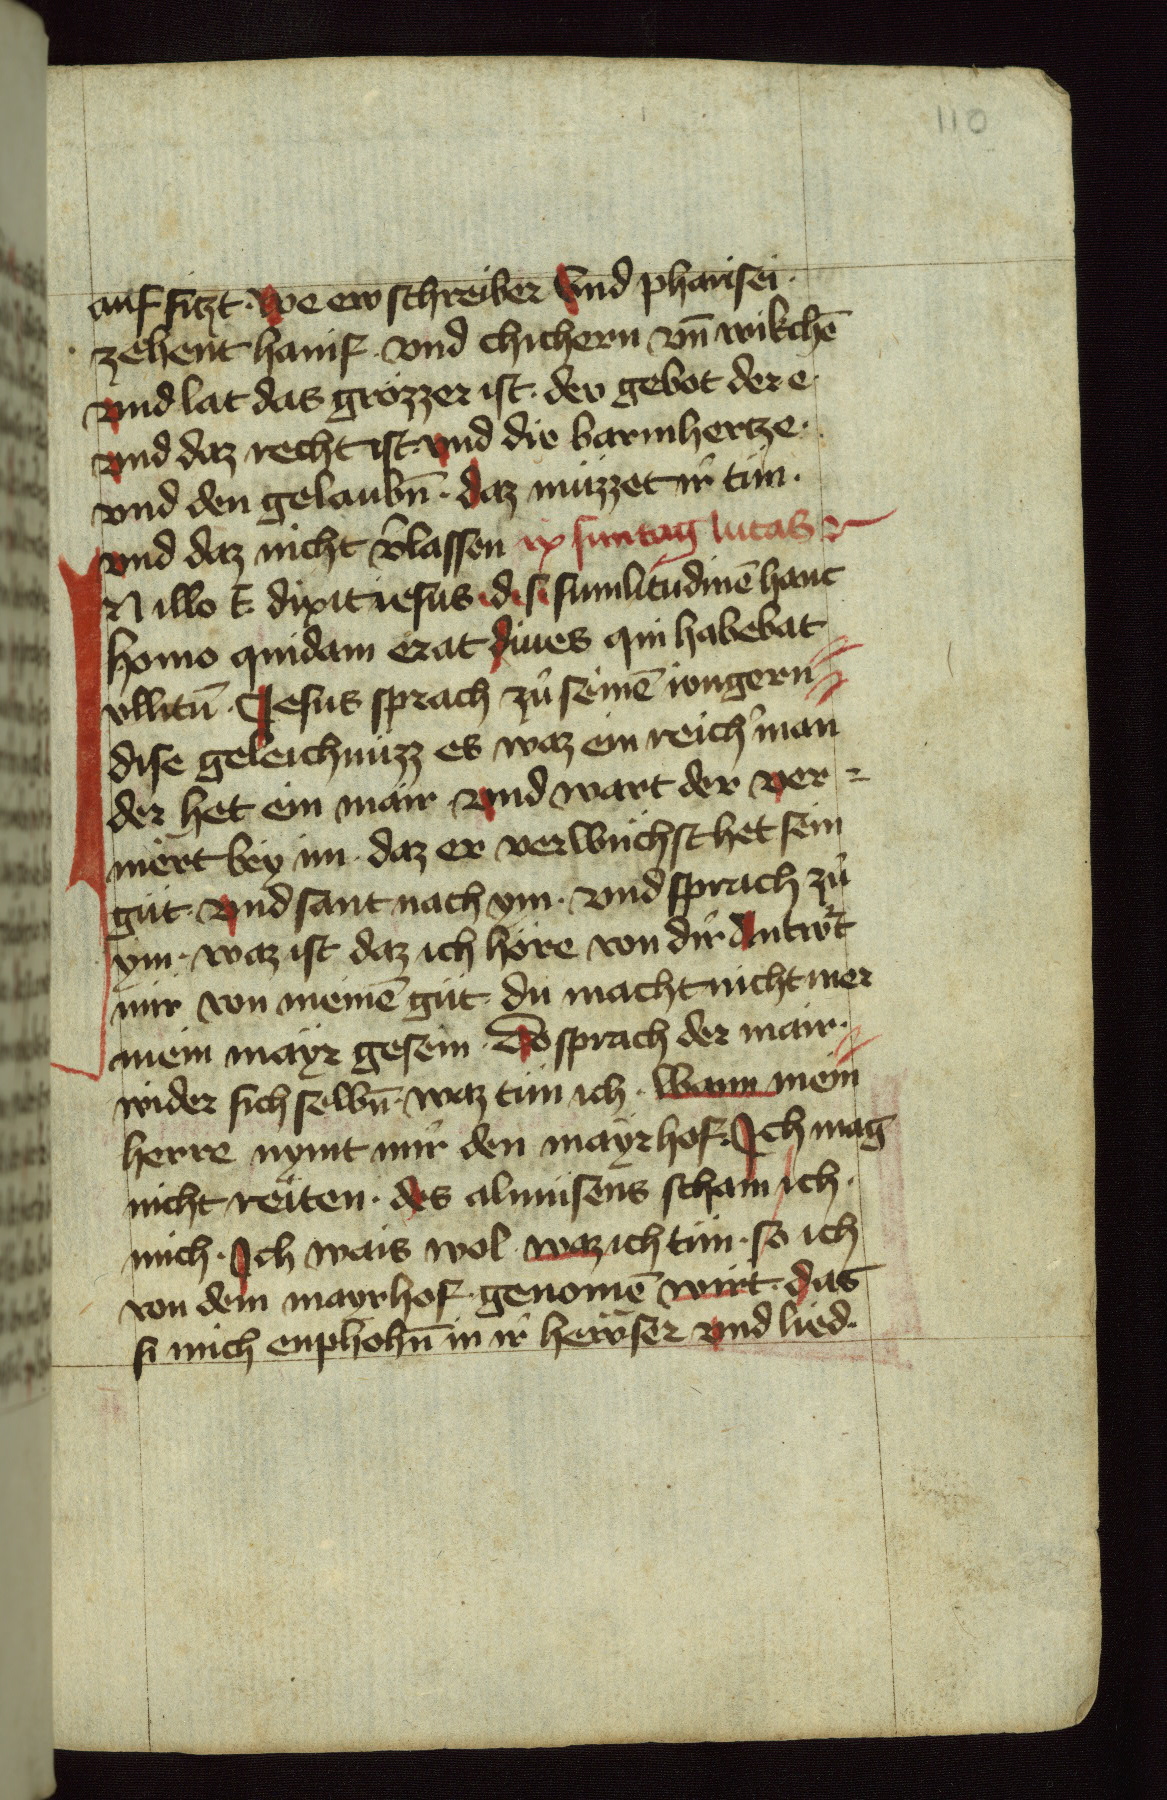 110
auf sitzt · We ew schreiber Und pharisei ·
zehent hanif · vnd chichern vn̄ wikchē
vnd lat das grözzer ist · der gebot der e ·
vnd daz recht ist · vnd die barmhertze ·
vnd den gelaubn̄ · daz müzzet ir tün ·
vnd daz nicht v̾lassen ix suntag lucas
IN illo t̄ dixit iesus · d · s · similitudinē hanc
homo quidam erat diues qui habebat
villicū · Jesus sprach zů seinē iungern
dise geleichnüzz es waz ein reich̾ man
der het ein mair vnd wart der ver =
mert bey im · daz er verwüchst het sein
güt · vnd sant nach ym · vnd sprach zů
ym · waz ist daz ich höre von dir Antw̾t
mir von meinē güt · du macht nicht mer
mein mayr gesein · Do sprach der mair ·
wider sich selbn̄ · waz tün ich · Wann mein
herre nymt mir den mayrhof · Ich mag
nicht reiten · des almüsens scham ich ·
mich · Ich wais wol waz ich tün · so ich
von dem mayrhof · genomē wirt · das
si mich enphohn̄ in ir hewser vnd lied ·